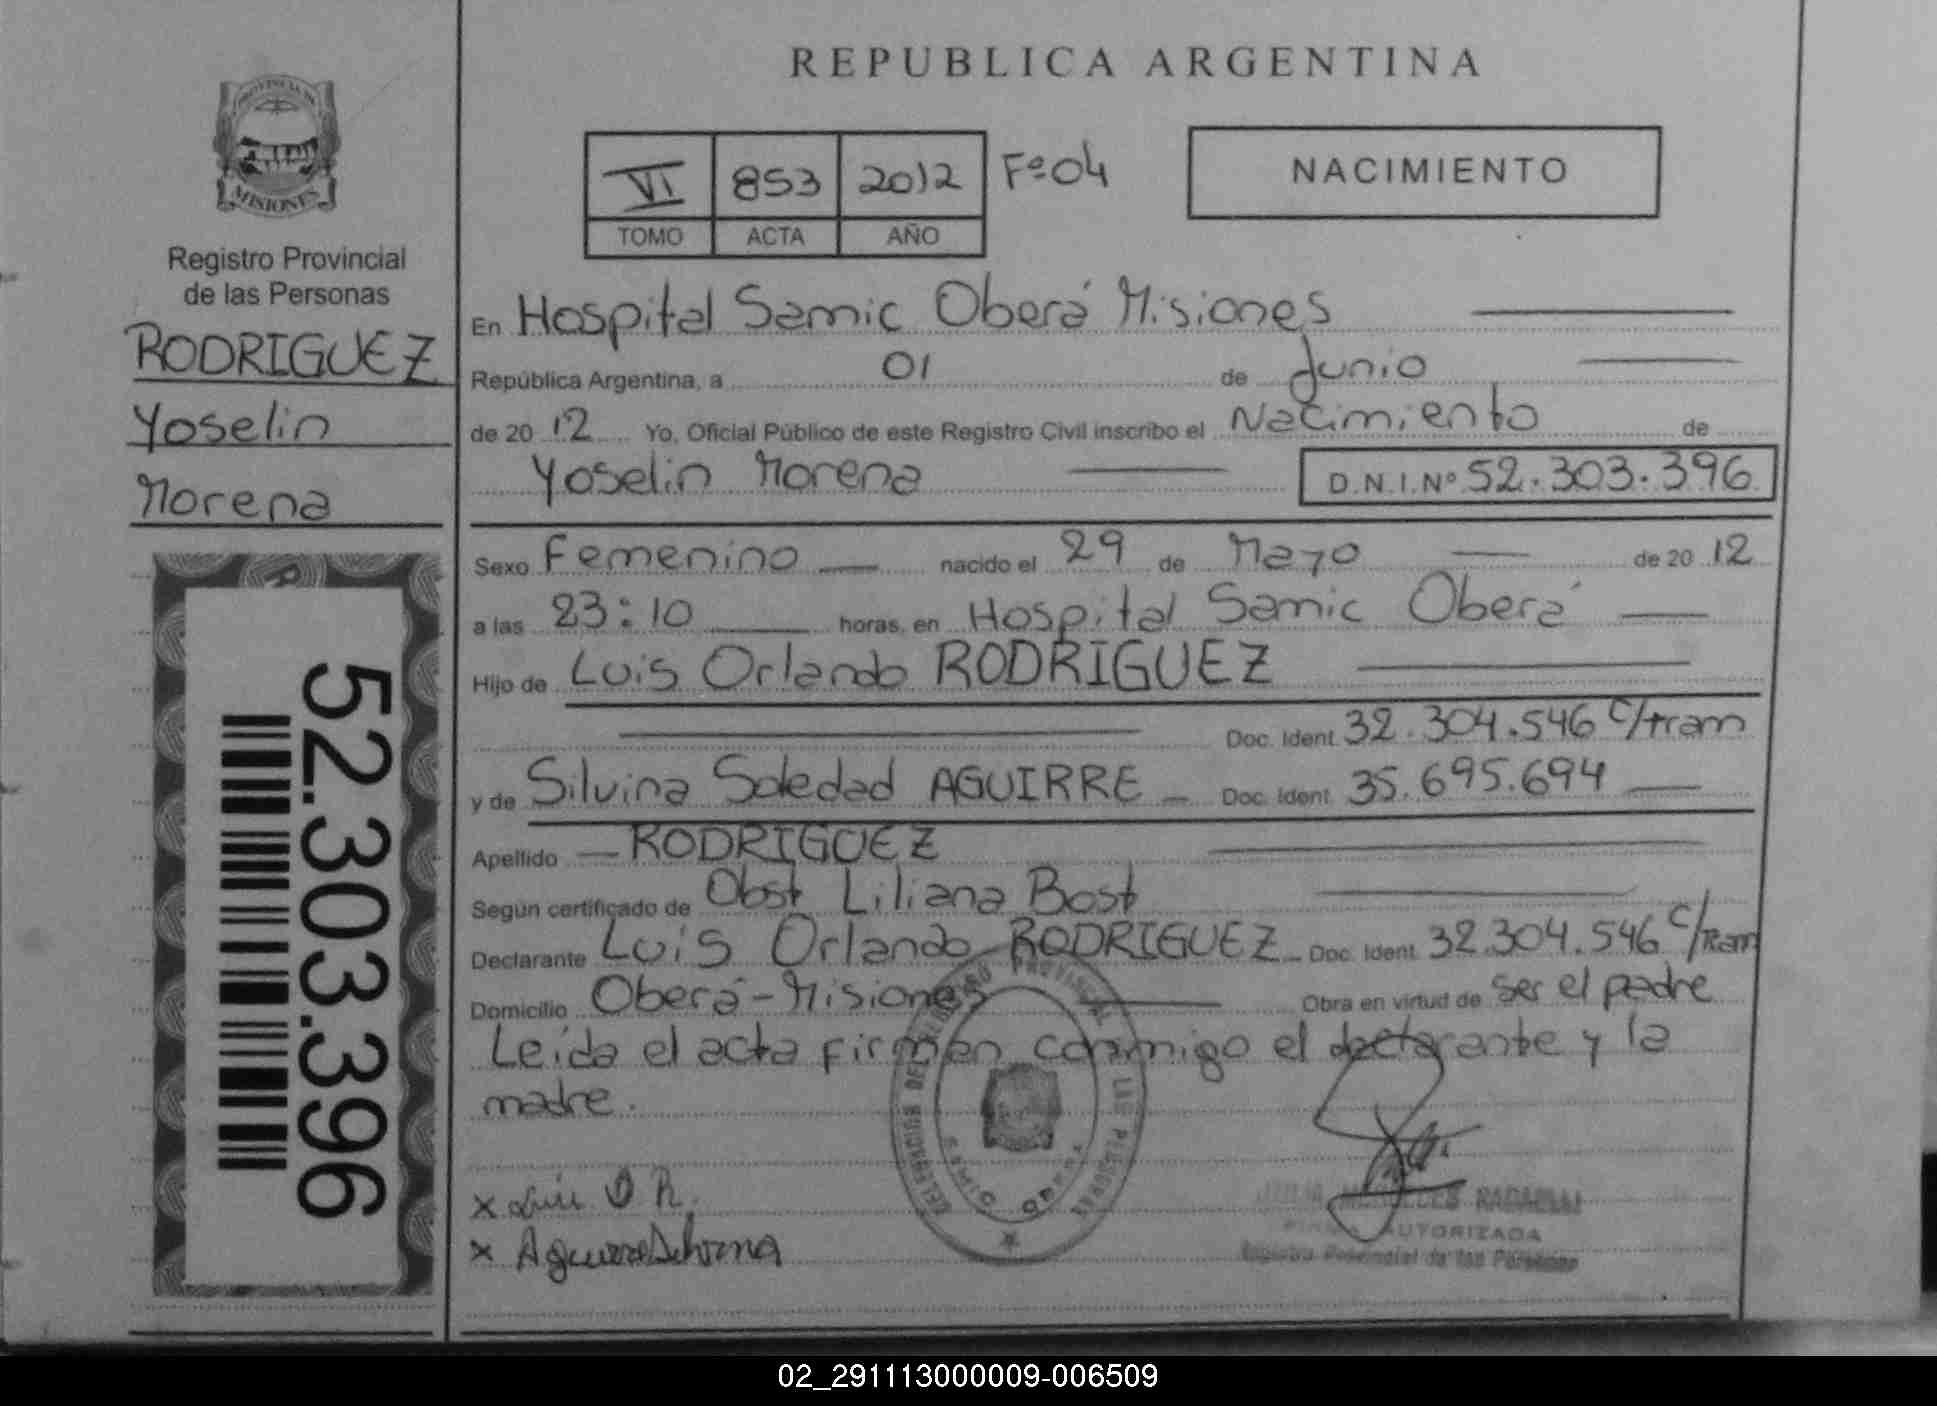 REPUBLICA ARGENTINA
PROVINCIA DE
MISIONES
Registro Provincial
de las Personas
RODRIGUEZ
Yoselin
Morena
52.303.396
VI 853 2012 Fº04
TOMO ACTA AÑO
NACIMIENTO
En Hospital Samic Oberá Misiones
República Argentina, a 01 de Junio
de 2012 Yo, Oficial Público de este Registro Civil inscribo el Nacimiento de
Yoselin Morena D.N.I.Nº 52.303.396
Sexo Femenino nacido el 29 de Mayo de 2012
a las 23:10 horas, en Hospital Samic Oberá
Hijo de Luis Orlando RODRIGUEZ
Doc. Ident. 32.304.546 c/tram
y de Silvina Soledad AGUIRRE Doc. Ident. 35.695.694
Apellido RODRIGUEZ
Según certificado de Obst Liliana Bost
Declarante Luis Orlando RODRIGUEZ Doc. Ident. 32.304.546 c/tram
Domicilio Oberá-Misiones Obra en virtud de ser el padre
Leida el acta firman conmigo el declarante y la
madre.
x Luis O R.
x Aguirre Silvina
FIRMA AUTORIZADA
Registro Provincial de las Personas
02_291113000009-006509